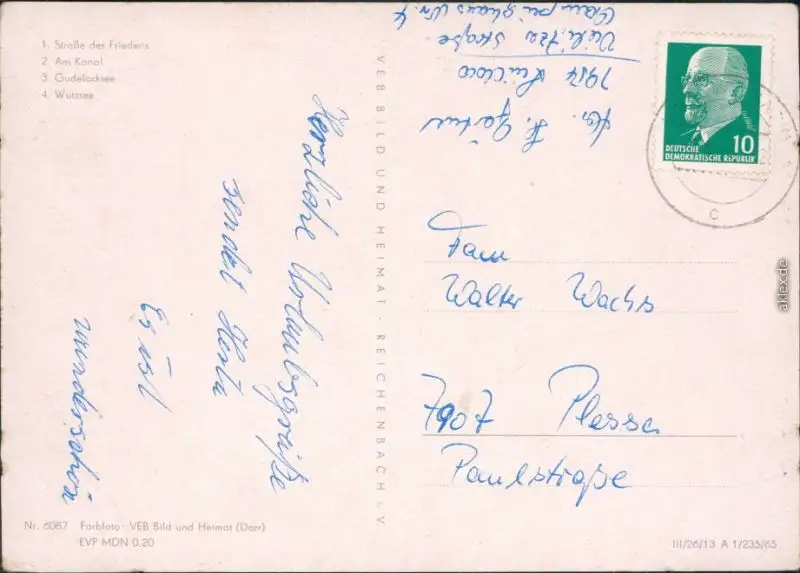 1 Straße des Friedens
2 Am Kanal
3 Gudelacksee
4. Wutzsee
Herzliche Urlaubsgrüße
sendet Herta
Es ist
wunderschön
VEB BILD UND HEIMAT · REICHENBACH I. V.
Straße
DEUTSCHE
DEMOKRATISCHE REPUBLIK
10
C
Fam
Walter Wachs
7907 Plessa
Paulstraße
Nr. 6087 Farbfoto · VEB Bild und Heimat (Darr)
EVP MDN 0.20
III/26/13 A 1/235/65
akpool.de